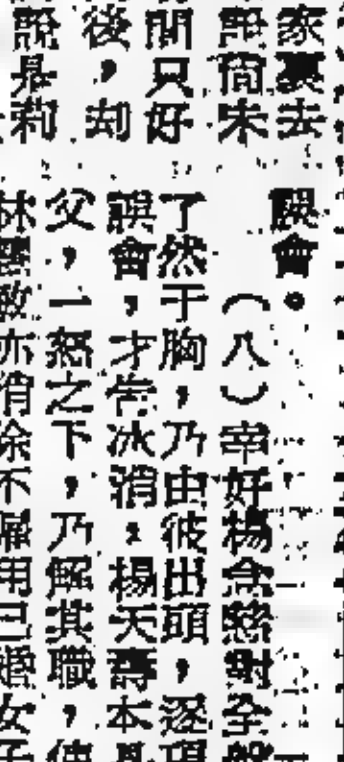 家裏去
尙未
間只好
後，却
說是莉
誤會。
（八）幸好楊念慈對全
了然于胸，乃由彼出頭，逐項
誤會，才告冰消，楊天壽本
父，一怒之下，乃解其職，
林 致亦消除不雇用已婚女子